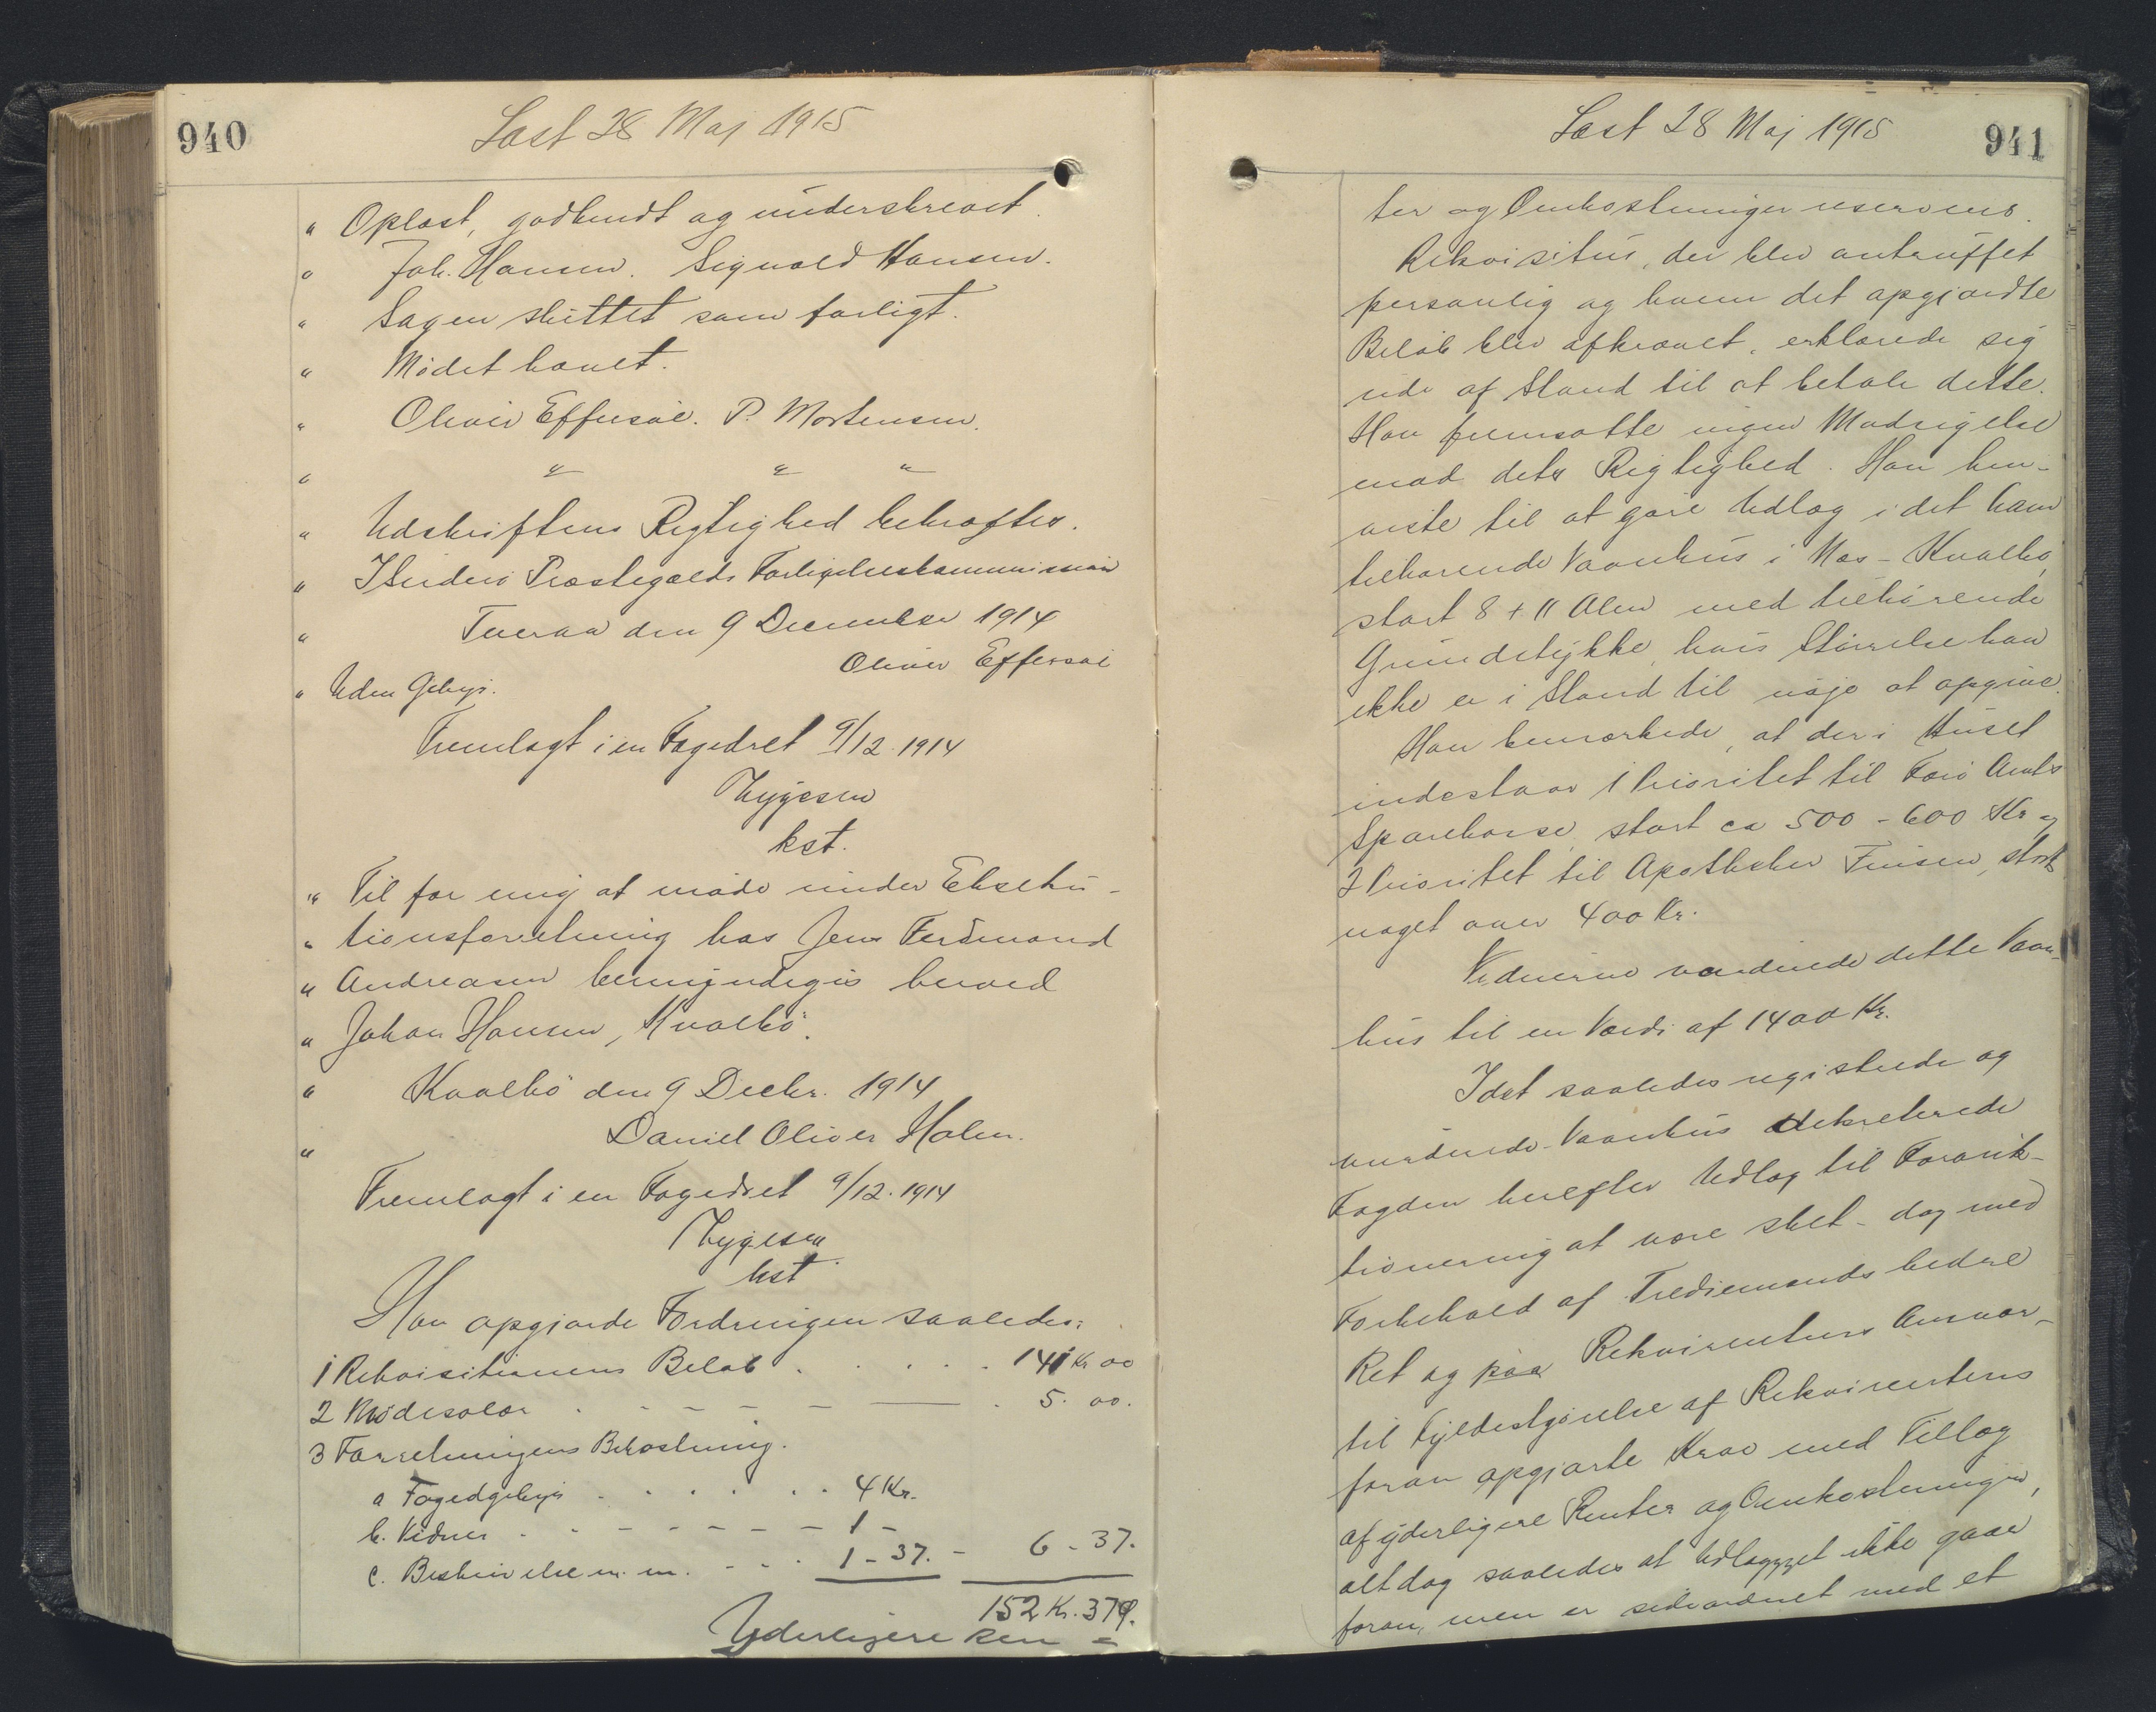 940
Læst 28 Maj 1915
" Oplæst, godkendt og underskrevet.
" Joh. Hansen. Sigvald Hansen.
" Sagen sluttet som forligt.
" Mødet hævet.
" Oliver Effersøe. P. Mortensen.
" " " "
" Udskriftens Rigtighed bekræftes.
" Suderø Præstegælds Forligelseskommission
" Tveraa den 9 December 1914
Oliver Effersøe
" Uden Gebyr.
Fremlagt i en Fogedret 9/12. 1914
Thygesen
kst.
" Til for mig at møde under Ekseku-
" tionsforretning hos Jens Ferdinand
" Andreasen bemyndiges herved
" Johan Hansen, Kvalbø.
" Kvalbø den 9 Decbr. 1914
" Daniel Oliver Holm.
Fremlagt i en Fogedret 9/12. 1914
Thygesen
kst
Han opgjorde Fordringen saaledes:
1 Rekvisitionens Beløb . . . . . 141 Kr 00
2 Mødesalær . - - - - . 5. 00.
3 Forretningens Bekostning.
a Fogedgebyr . . . . . . 4 Kr.
b. Vidner . - - - - - - 1 -
c. Beskrivelse m. m. - - . 1 - 37. - 6 - 37.
152 Kr. 37 Ø.
Yderligere Ren =
Læst 28 Maj 1915
941
ter og Omkostninger reserveres.
Rekvisitus, der blev antruffet
personlig og hvem det opgjordte
Beløb blev afkrævet, erklærede sig
ude af Stand til at betale dette.
Han fremsatte ingen Modsigelse
mod dets Rigtighed. Han hen-
viste til at gøre Udlæg i det ham
tilhørende Vaanhus i Nes-Kvalbø,
stort 8 + 11 Alen med tilhørende
Grundstykke, hvis Størrelse han
ikke er i Stand til nøje at opgive.
Han bemærkede, at der i Huset
indestaar 1 Prioritet til Færø Amts
Sparekasse, stort ca 500 - 600 Kr og
2 Prioritet til Apotheker Finsen, stort
noget over 400 Kr.
Vidnerne vurderede dette Vaan-
hus til en Værdi af 1400 Kr.
I det saaledes registrede og
vurderede Vaanhus dekreterede
Fogden herefter Udlæg til Forauk-
tionering at være sket - dog med
Forbehold af Trediemands bedre
Ret og paa Rekvirentens Ansvar -
til Fyldestgørelse af Rekvirentens
foran opgjorte Krav med Tillæg
af yderligere Renter og Omkostninger,
alt dog saaledes at Udlægget ikke gaar
foran, men er sideordnet med et